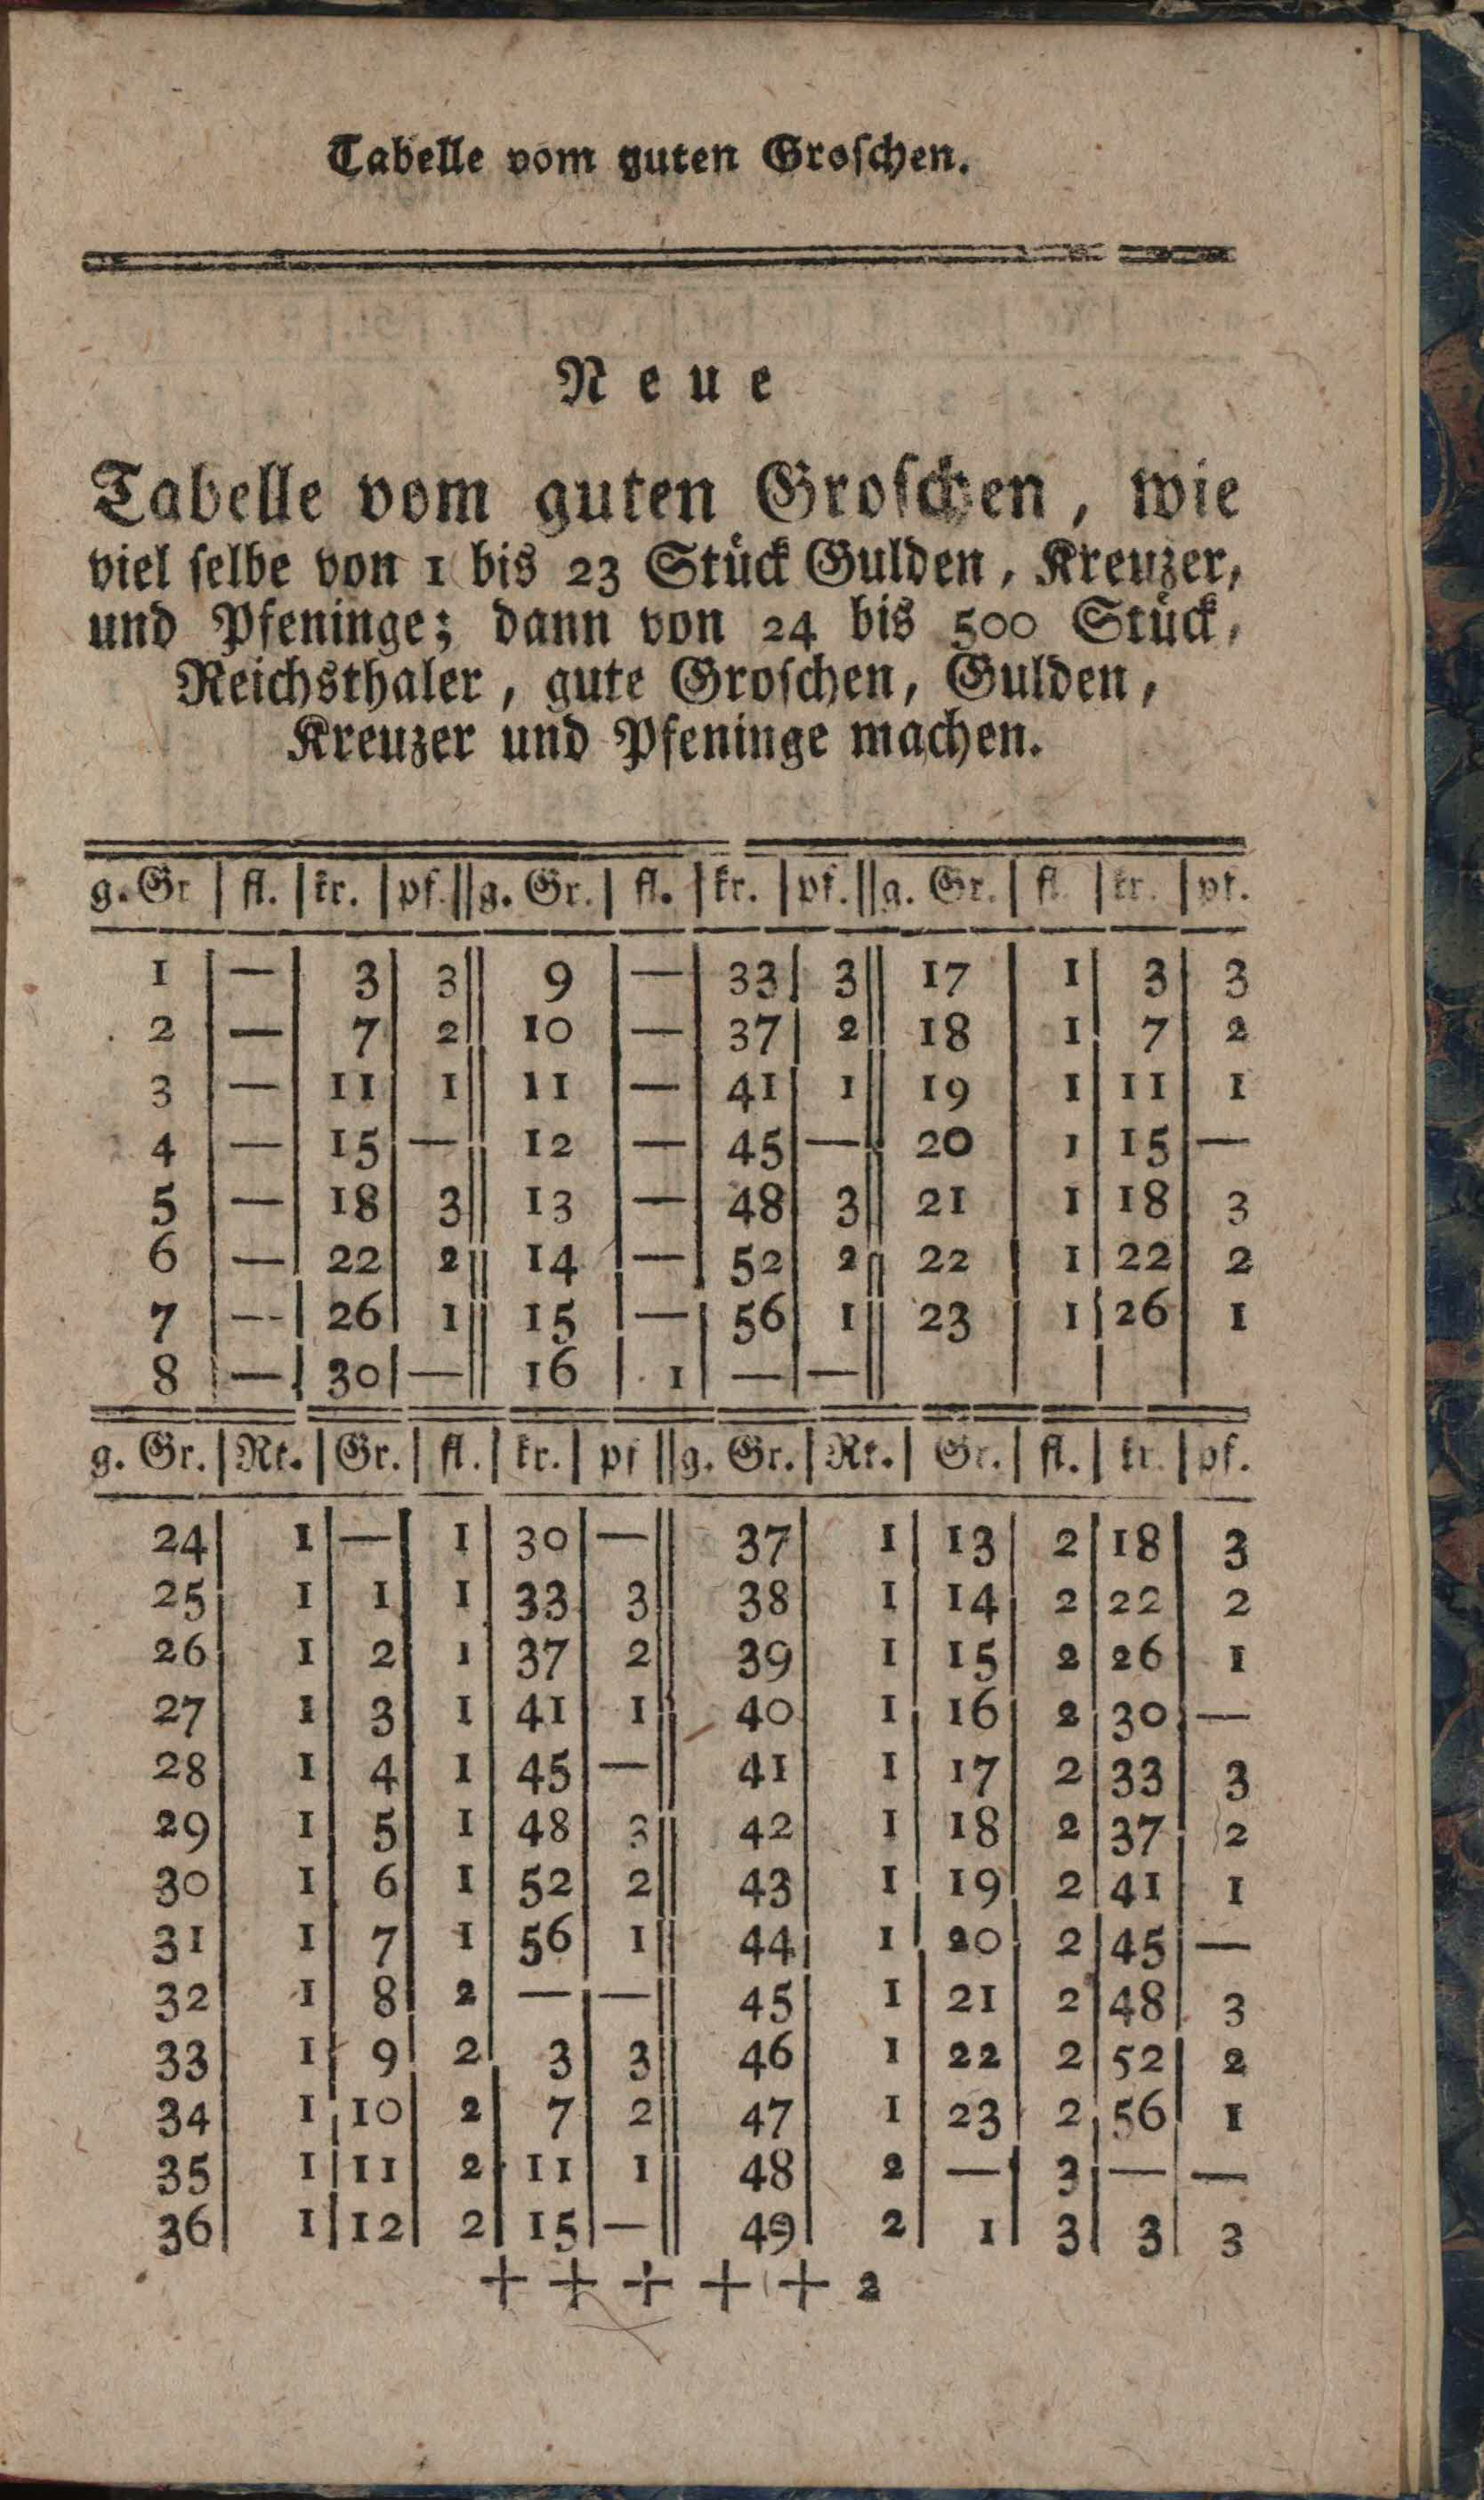 Tabelle vom guten Groſchen.
Neue
Tabelle vom guten Groſchen, wie
viel ſelbe von 1 bis 23 Stück Gulden, Kreuzer,
und Pfeninge; dann von 24 bis 500 Stück,
Reichsthaler, gute Groſchen, Gulden,
Kreuzer und Pfeninge machen.
g. Gr | fl. | kr. | pf. || g. Gr. | fl. | kr. | pf. || g. Gr. | fl | kr. | pf.
1 | — | 3 | 3 || 9 | — | 33 | 3 || 17 | 1 | 3 | 3
2 | — | 7 | 2 || 10 | — | 37 | 2 || 18 | 1 | 7 | 2
3 | — | 11 | 1 || 11 | — | 41 | 1 || 19 | 1 | 11 | 1
4 | — | 15 | — || 12 | — | 45 | — || 20 | 1 | 15 | —
5 | — | 18 | 3 || 13 | — | 48 | 3 || 21 | 1 | 18 | 3
6 | — | 22 | 2 || 14 | — | 52 | 2 || 22 | 1 | 22 | 2
7 | — | 26 | 1 || 15 | — | 56 | 1 || 23 | 1 | 26 | 1
8 | — | 30 | — || 16 | 1 | — | — ||
g. Gr. | Rt. | Gr. | fl. | kr. | pf || g. Gr. | Rt. | Gr. | fl. | kr. | pf.
24 | 1 | — | 1 | 30 | — || 37 | 1 | 13 | 2 | 18 | 3
25 | 1 | 1 | 1 | 33 | 3 || 38 | 1 | 14 | 2 | 22 | 2
26 | 1 | 2 | 1 | 37 | 2 || 39 | 1 | 15 | 2 | 26 | 1
27 | 1 | 3 | 1 | 41 | 1 || 40 | 1 | 16 | 2 | 30 | —
28 | 1 | 4 | 1 | 45 | — || 41 | 1 | 17 | 2 | 33 | 3
29 | 1 | 5 | 1 | 48 | 3 || 42 | 1 | 18 | 2 | 37 | 2
30 | 1 | 6 | 1 | 52 | 2 || 43 | 1 | 19 | 2 | 41 | 1
31 | 1 | 7 | 1 | 56 | 1 || 44 | 1 | 20 | 2 | 45 | —
32 | 1 | 8 | 2 | — | — || 45 | 1 | 21 | 2 | 48 | 3
33 | 1 | 9 | 2 | 3 | 3 || 46 | 1 | 22 | 2 | 52 | 2
34 | 1 | 10 | 2 | 7 | 2 || 47 | 1 | 23 | 2 | 56 | 1
35 | 1 | 11 | 2 | 11 | 1 || 48 | 2 | — | 3 | — | —
36 | 1 | 12 | 2 | 15 | — || 49 | 2 | 1 | 3 | 3 | 3
+ + + + + 2